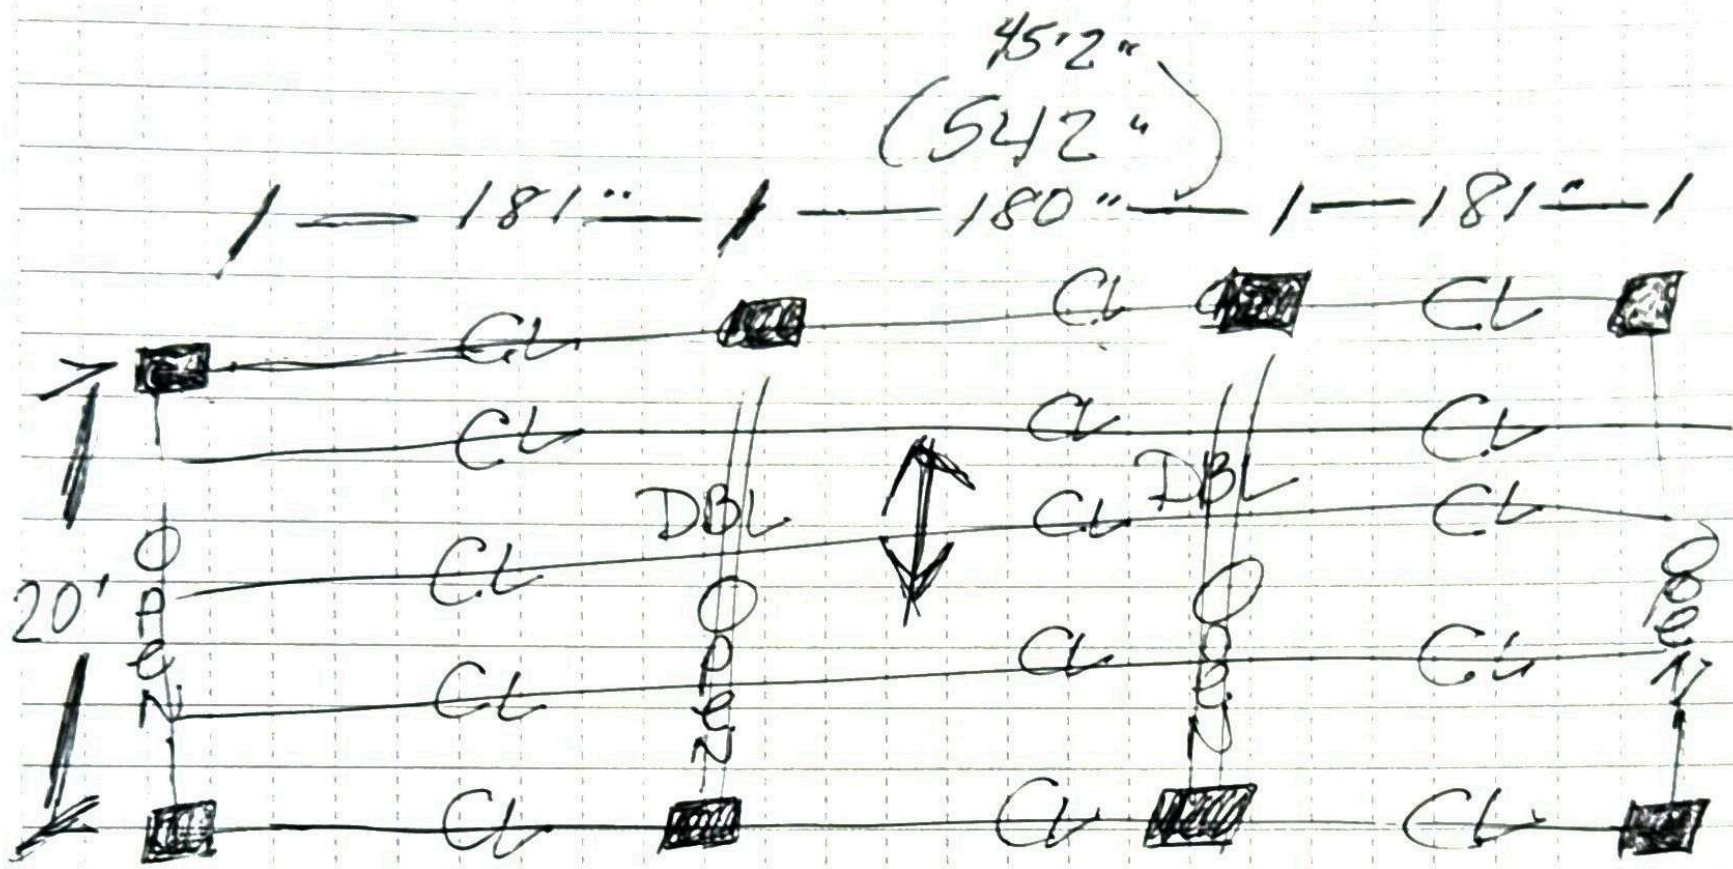 45'2"
(542")
181" 180" 181"
CL CL CL
CL CL CL
DBL DBL
CL CL CL
20'
OPeN OPeN OPeN OPeN
CL CL CL
CL CL CL